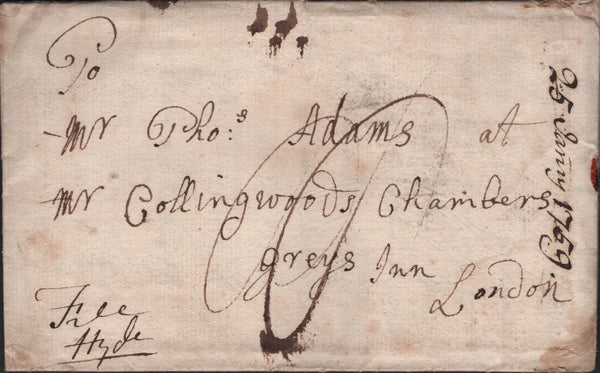 To
Mr Tho:s Adams at
Mr Collingwoods Chambers
greys Inn
London
Free
Hyde
25 Janry 1769